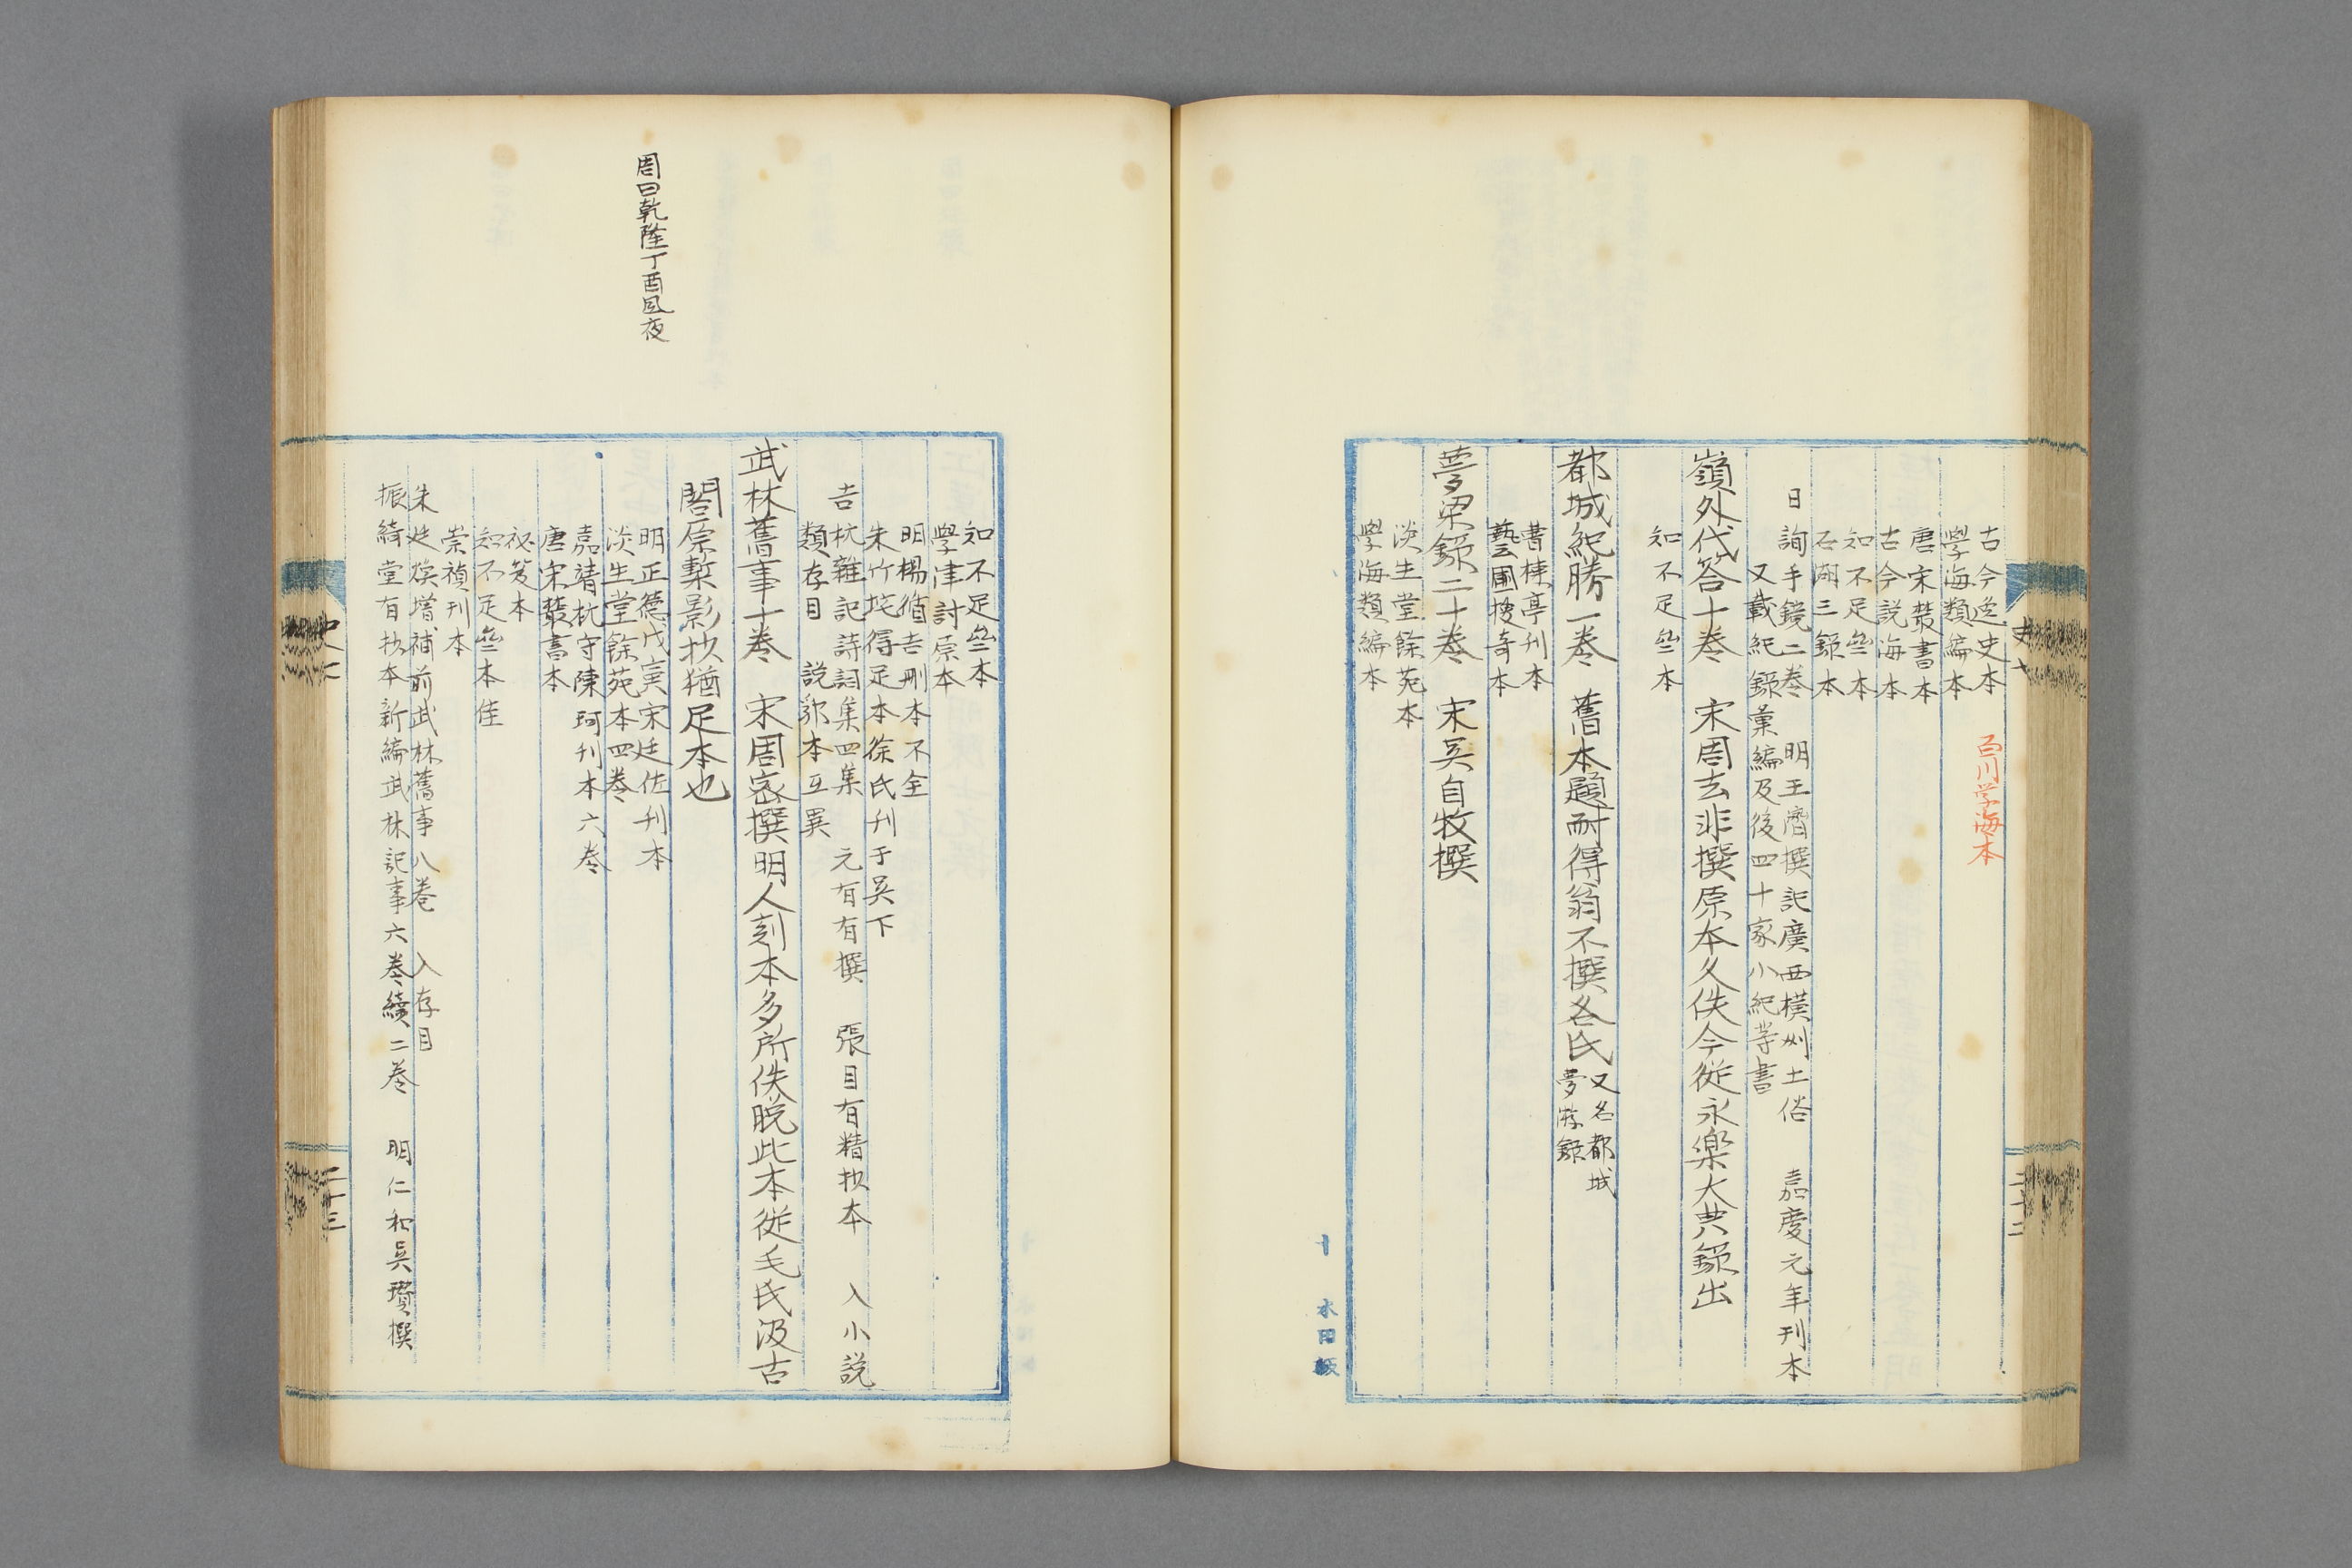 古今逸史本　百川学海本
學海類編本
唐宋叢書本
古今説海本
知不足亝本
石湖三錄本
日詢手鏡二卷　明王濟撰記廣西橫州土俗　嘉慶元年刊本
又載紀錄彙編及後四十家小紀等書
嶺外代答十卷　宋周去非撰原本久佚今從永樂大典錄出
知不足亝本
都城紀勝一卷　舊本題耐得翁不撰名氏
又名都城
夢游錄
曹棟亭刊本
藝圃搜奇本
夢梁錄二十卷　宋吳自牧撰
淡生堂餘苑本
學海類編本
知不足亝本
學津討原本
明楊循吉刪本不全
朱竹垞得足本徐氏刊于吳下
吉杭雜記詩詞集四集　元有有撰　張目有精抄本　入小説
類存目　説郛本互異
武林舊事十卷　宋周密撰明人刻本多所佚脱此本從毛氏汲古
閣原槧影抄猶足本也
周曰乾隆丁酉夙夜
明正德戊寅宋廷佐刊本
淡生堂餘苑本四卷
嘉靖杭守陳珂刊本六卷
唐宋叢書本
祕笈本
知不足亝本佳
崇禎刊本
朱廷煥增補前武林舊事八卷　入存目
振綺堂有抄本新編武林記事六卷續二卷　明仁和吳瓚撰
史十
二十二
二十三
十　水田板